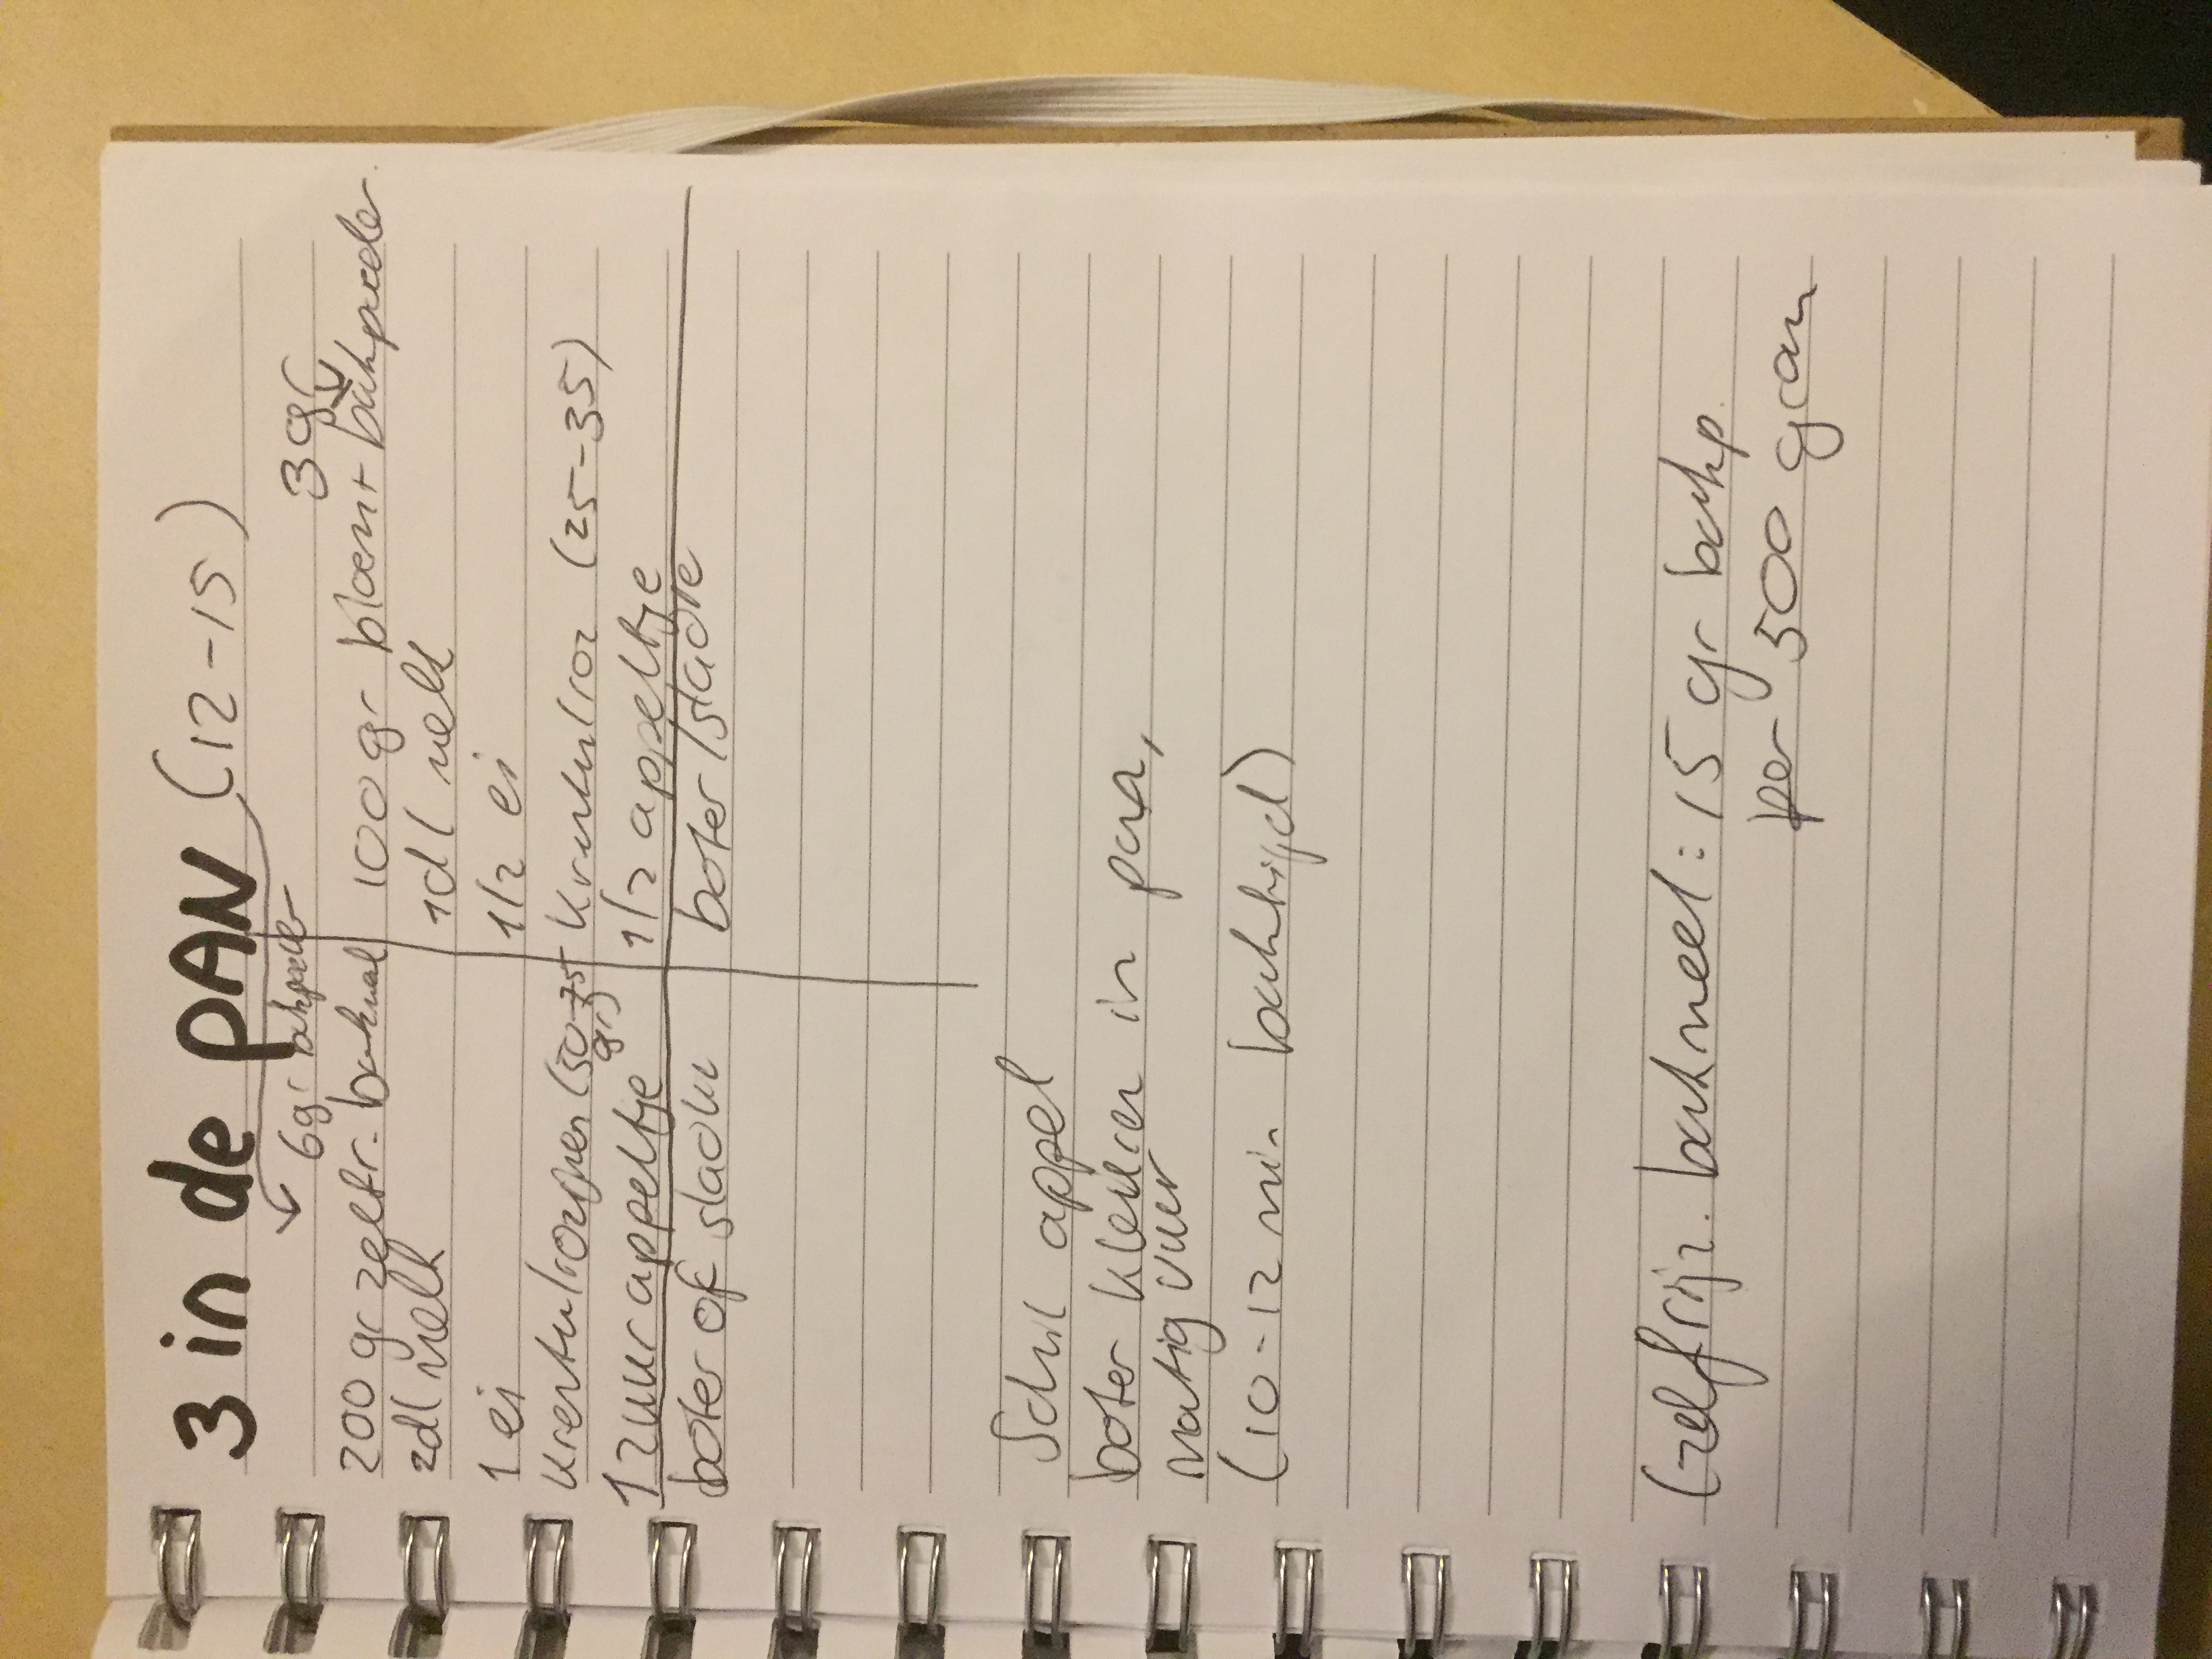 3 in de PAN (12-15)
6gr bakpoeder
3gr
200 gr zelfr. bakmeel
100 gr bloem + bakpoeder
2dl melk
1dl melk
1 ei
1/2 ei
Krenten/rozijnen (50-75 gr)
Krenten/roz (25-35)
1 zuur appeltje
1/2 appeltje
boter of slaolie
boter/slaolie
Schil appel
boter kleuren in pan,
matig vuur
(10-12 min baktijd)
(zelfrijz. bakmeel: 15 gr bakp.
per 500 gram